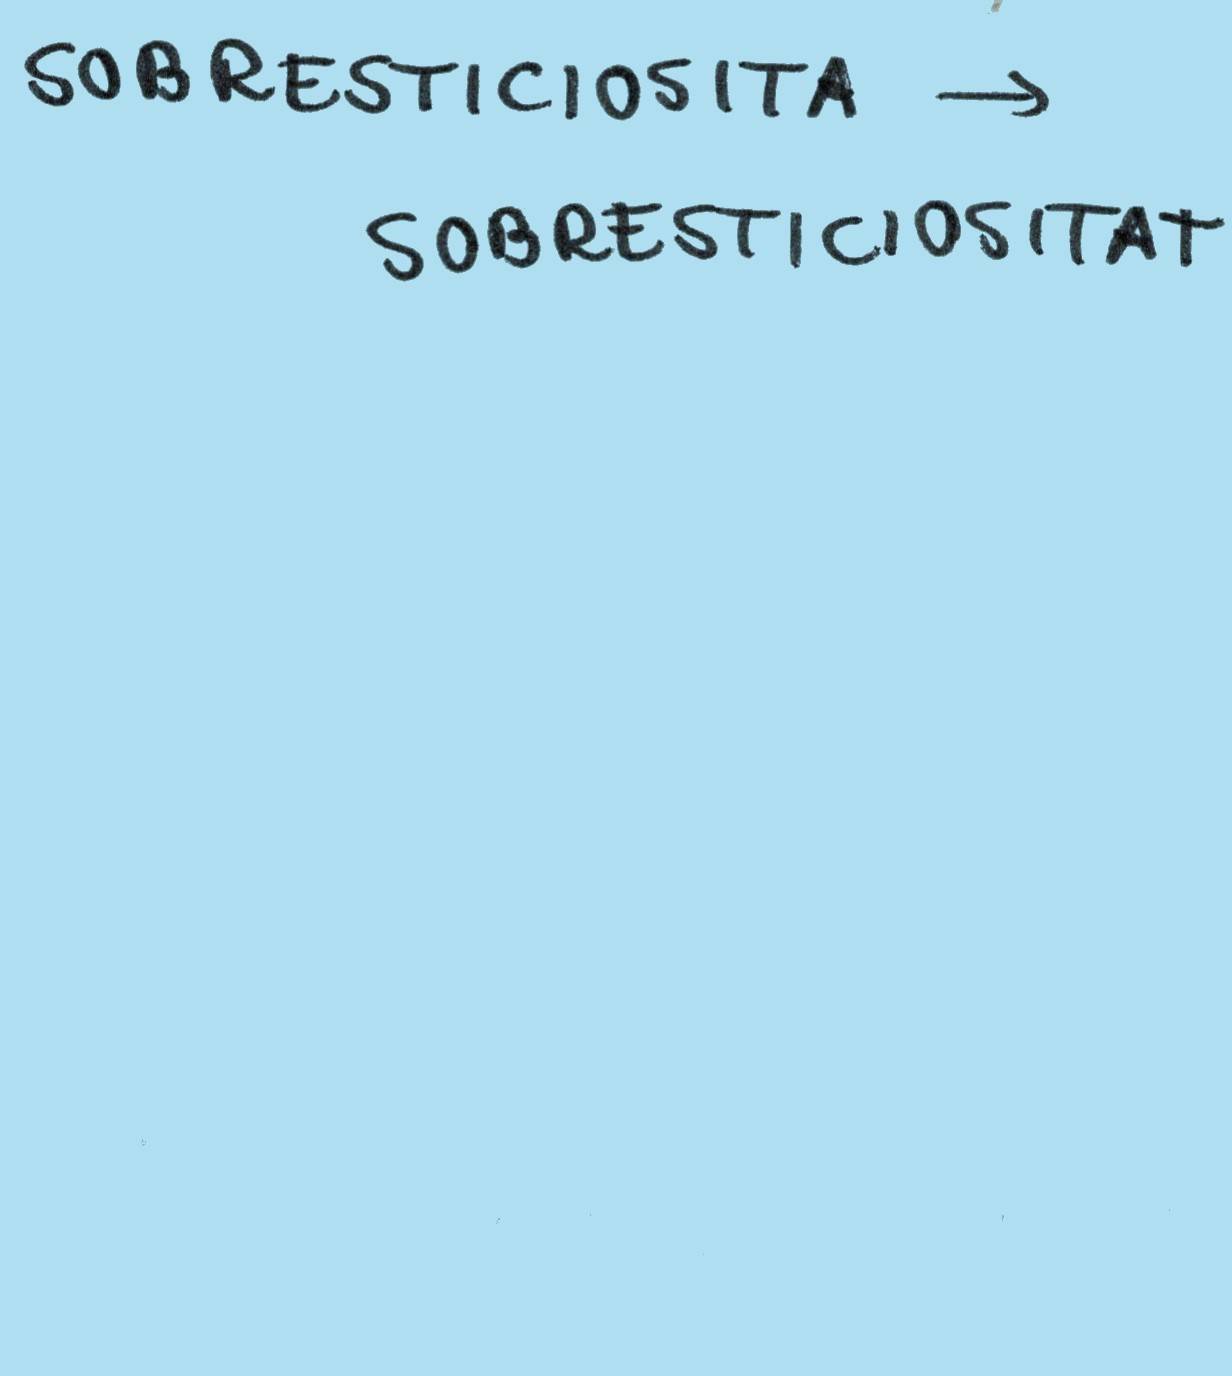 SOBRESTICIOSITA →
SOBRESTICIOSITAT